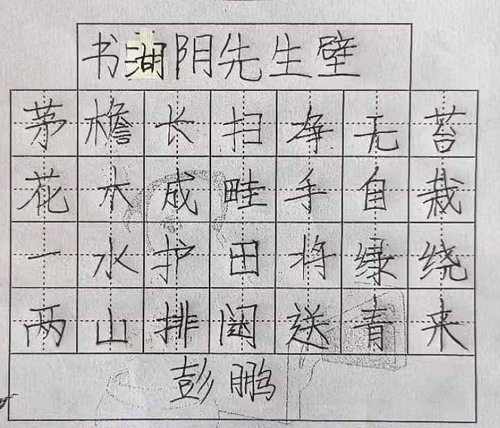 书湖阴先生壁
茅檐长扫净无苔
花木成畦手自栽
一水护田将绿绕
两山排闼送青来
彭鹏